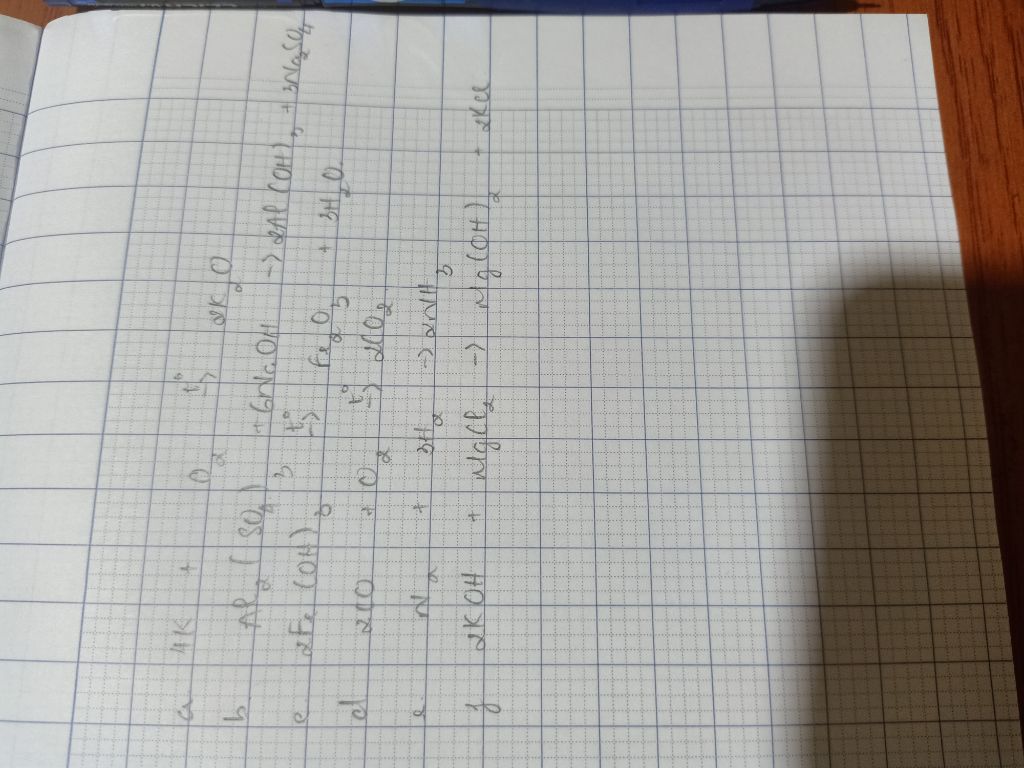 a 4K + O2 t°-> 2K2O
b Al2(SO4)3 + 6NaOH -> 2Al(OH)3 + 3Na2SO4
c 2Fe(OH)3 t°-> Fe2O3 + 3H2O
d 2CO + O2 t°-> 2CO2
e N2 + 3H2 -> 2NH3
f 2KOH + MgCl2 -> Mg(OH)2 + 2KCl